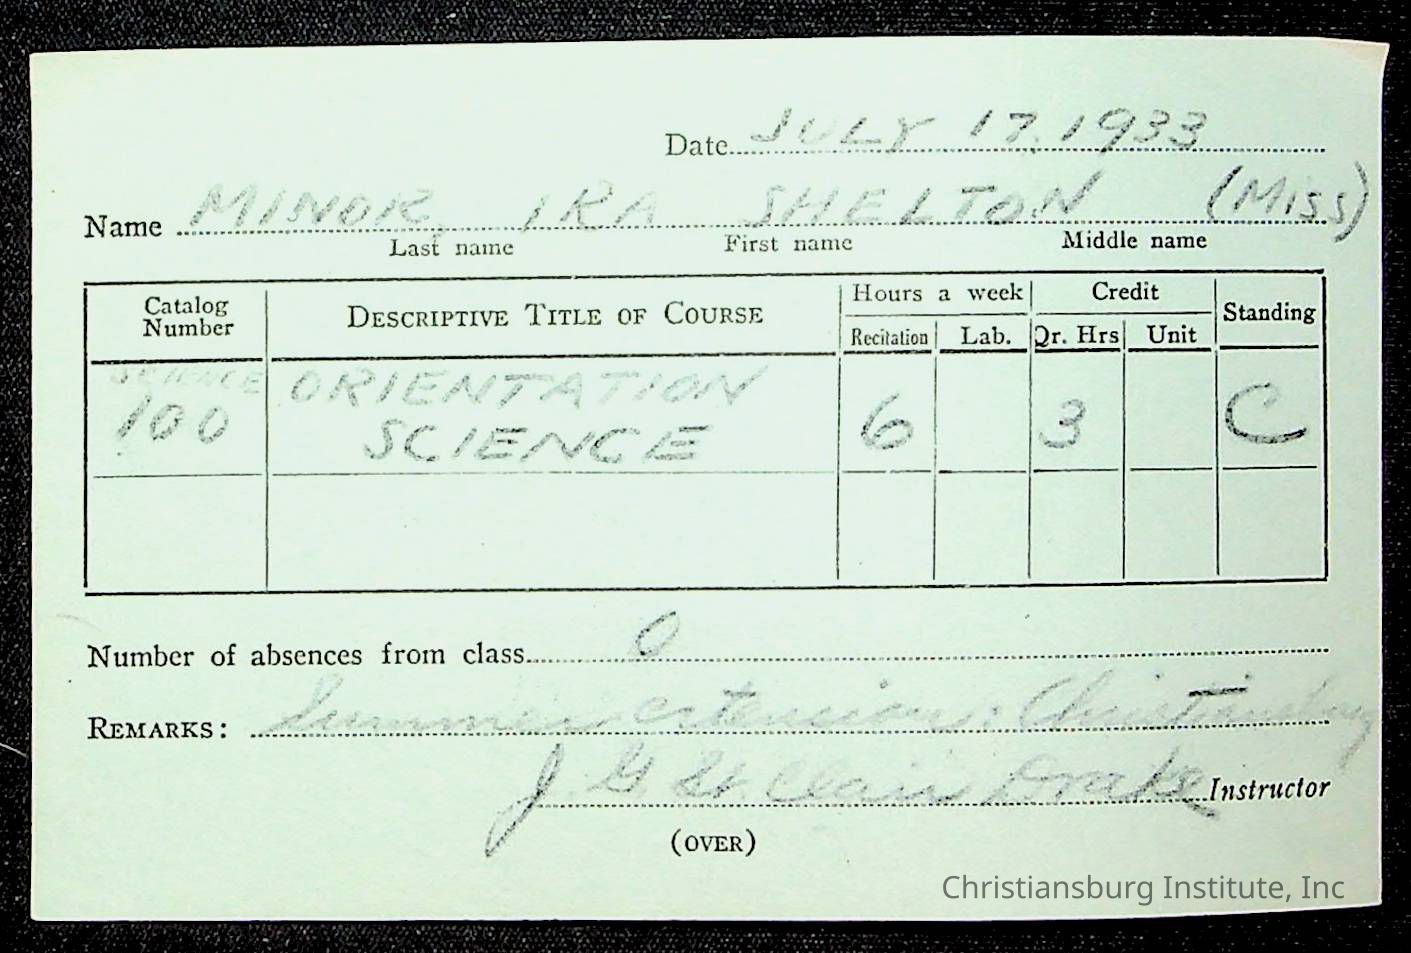 Date JULY 17, 1933
Name MINOR, IRA SHELTON (MISS)
Last name First name Middle name
Catalog Number DESCRIPTIVE TITLE OF COURSE Hours a week Credit Standing
Recitation Lab. Qr. Hrs Unit
SCIENCE ORIENTATION
100 SCIENCE 6 3 C
Number of absences from class 0
REMARKS: Summer extension: Christiansburg
J. G. St. Clair Drake Instructor
(OVER)
Christiansburg Institute, Inc